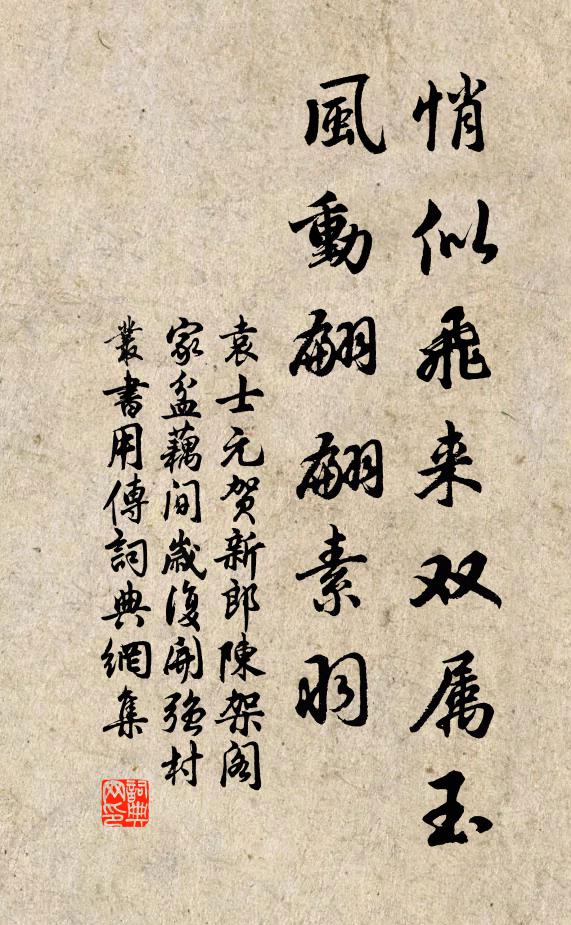 悄似飛来双属玉
風動翩翩素羽
袁士元贺新郎陳架阁
家盆藕间歲復開强村
叢書用傳詞典網集
詞典网印